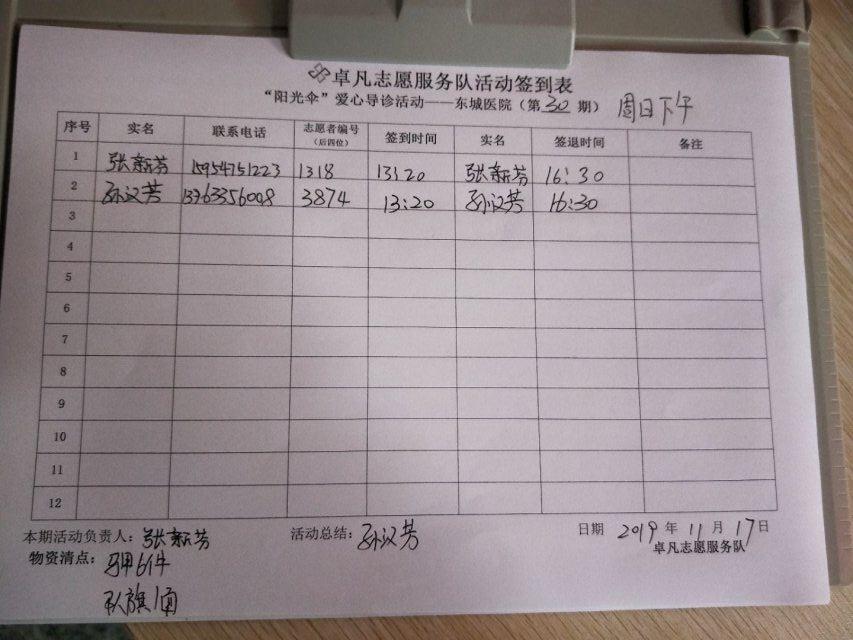 卓凡志愿服务队活动签到表
“阳光伞”爱心导诊活动——东城医院（第30期） 周日下午
序号 实名 联系电话 志愿者编号（后四位） 签到时间 实名 签退时间 备注
1 张新芳 15954751223 1318 13:20 张新芳 16:30
2 孙汉芳 13763356008 3874 13:20 孙汉芳 16:30
3
4
5
6
7
8
9
10
11
12
本期活动负责人：张新芳 活动总结：孙汉芳 日期 2019年11月17日
物资清点：马甲6件 卓凡志愿服务队
队旗1面